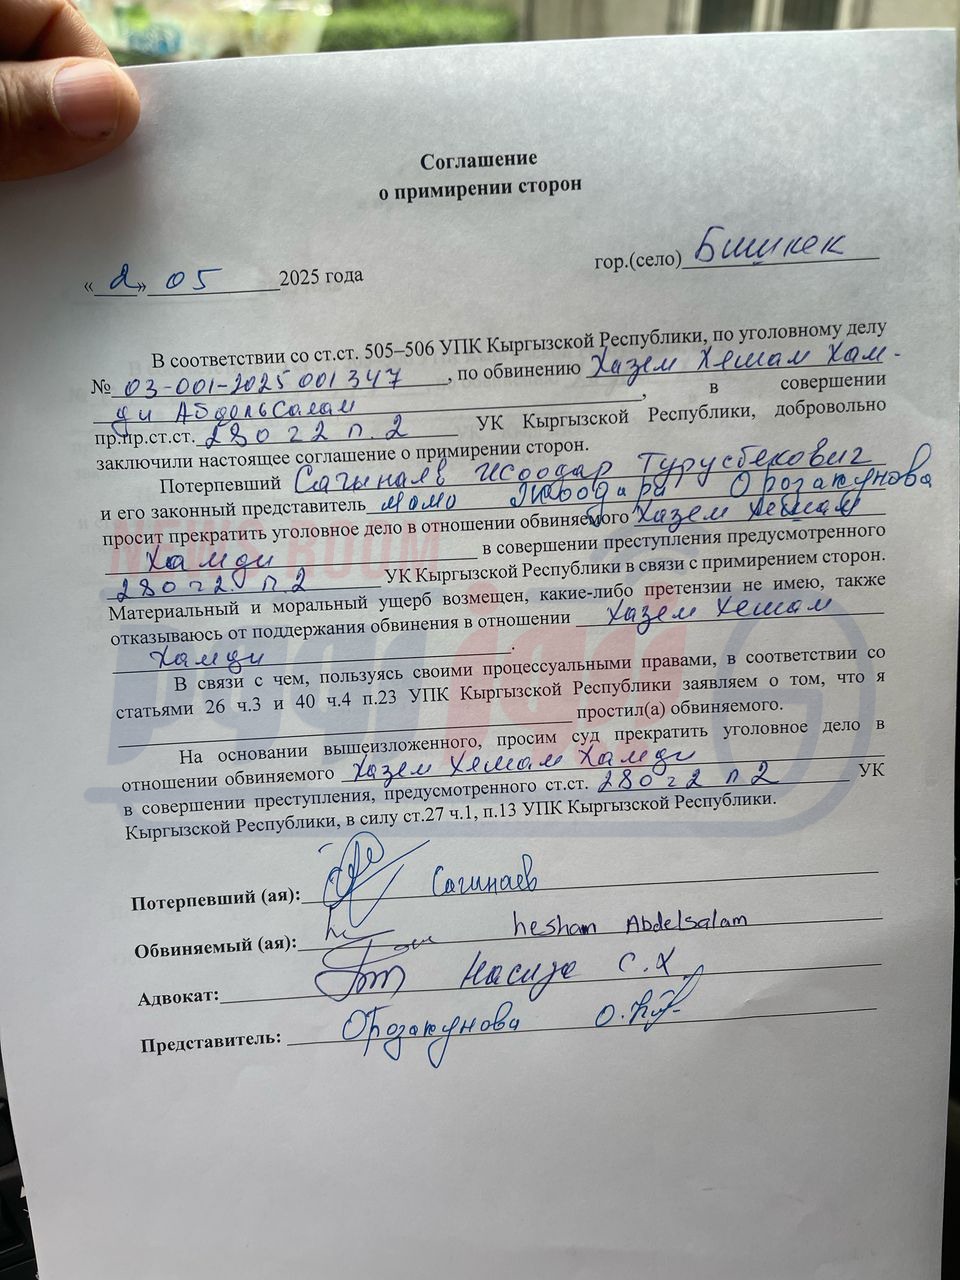 Соглашение
о примирении сторон
« 2 » 05 2025 года гор.(село) Бишкек
В соответствии со ст.ст. 505–506 УПК Кыргызской Республики, по уголовному делу
№ 03-001-2025001347, по обвинению Хазем Хешам Хам-
ди Абдельсалам, в совершении
пр.пр.ст.ст. 280 ч 2 п. 2 УК Кыргызской Республики, добровольно
заключили настоящее соглашение о примирении сторон.
Потерпевший Сагынаев Турусбекович
и его законный представитель Орозакунова
просит прекратить уголовное дело в отношении обвиняемого Хазем Хешам
Хамди в совершении преступления предусмотренного
280 ч 2. п. 2 УК Кыргызской Республики в связи с примирением сторон.
Материальный и моральный ущерб возмещен, какие-либо претензии не имею, также
отказываюсь от поддержания обвинения в отношении Хазем Хешам
Хамди.
В связи с чем, пользуясь своими процессуальными правами, в соответствии со
статьями 26 ч.3 и 40 ч.4 п.23 УПК Кыргызской Республики заявляем о том, что я
простил(а) обвиняемого.
На основании вышеизложенного, просим суд прекратить уголовное дело в
отношении обвиняемого Хазем Хешам Хамди
в совершении преступления, предусмотренного ст.ст. 280 ч 2 п 2 УК
Кыргызской Республики, в силу ст.27 ч.1, п.13 УПК Кыргызской Республики.
Потерпевший (ая): Сагинаев
Обвиняемый (ая): hesham Abdelsalam
Адвокат: С.Х
Представитель: Орозакунова О.
NEWS ROOM
نيوز رووم